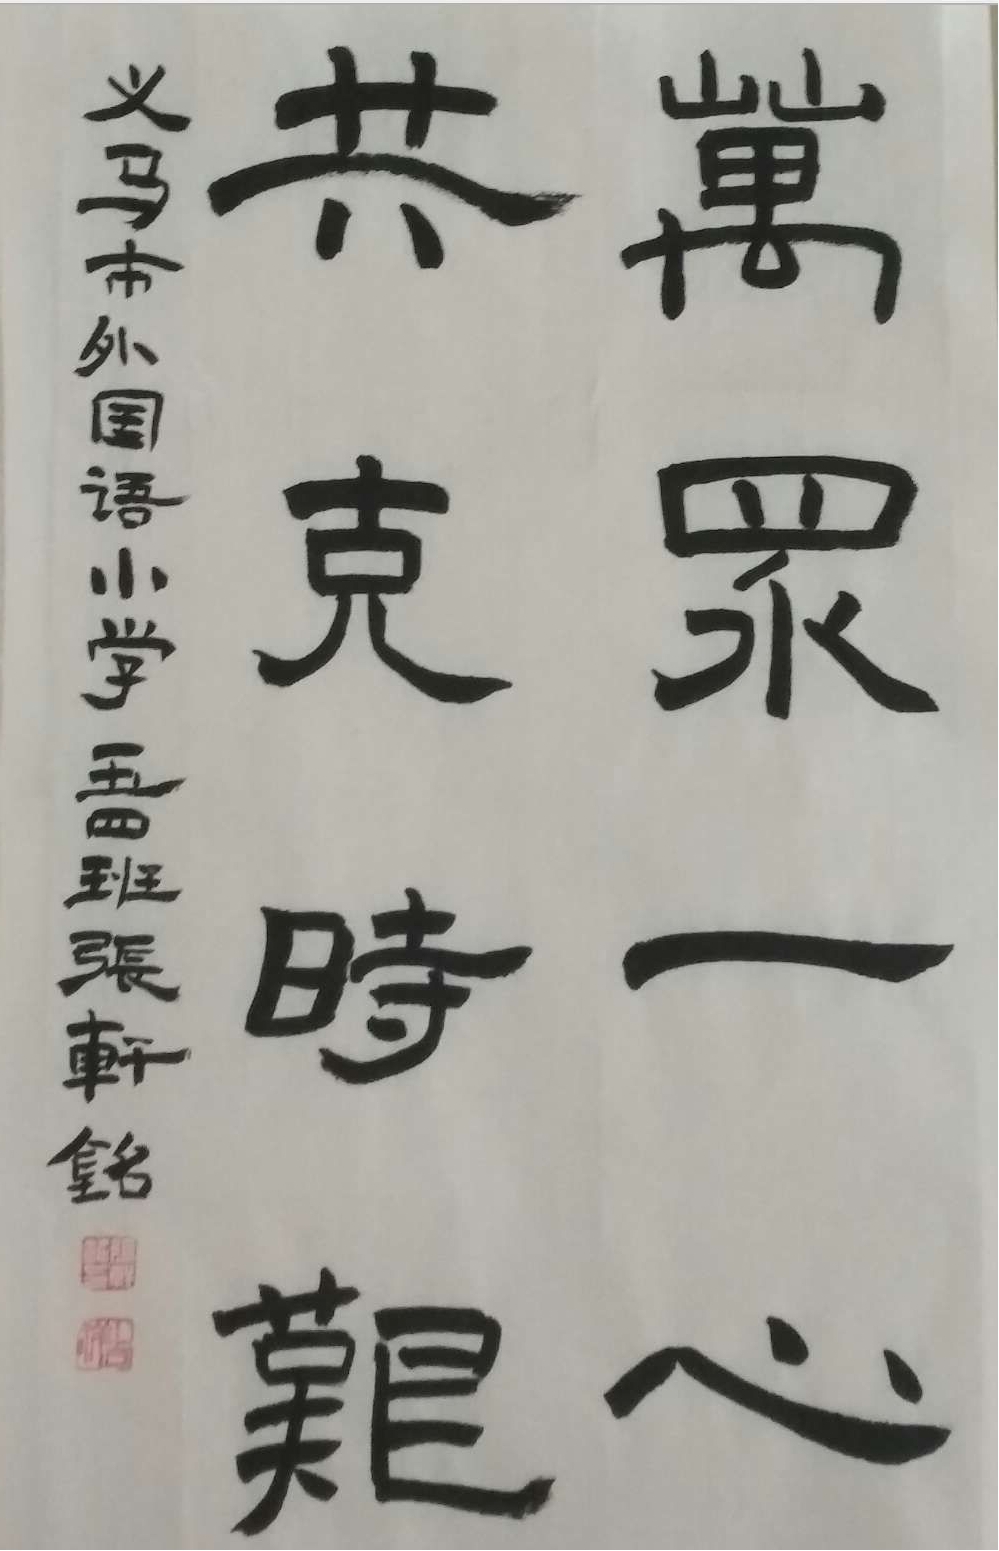 萬眾一心
共克時艱
义马市外国语小学五四班張軒銘